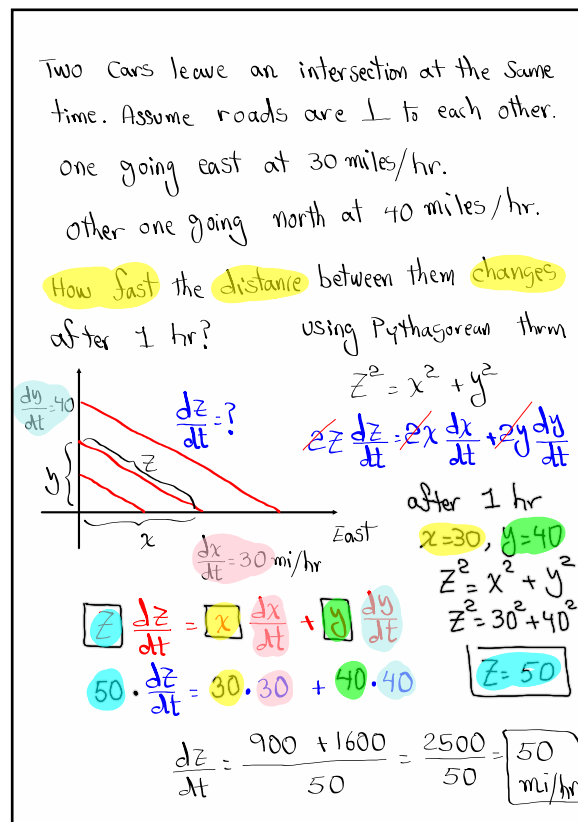 Two cars leave an intersection at the same
time. Assume roads are ⊥ to each other.
one going east at 30 miles/hr.
other one going north at 40 miles/hr.
How fast the distance between them changes
after 1 hr? using Pythagorean thrm
z² = x² + y²
dy/dt = 40
dz/dt = ?
2z dz/dt = 2x dx/dt + 2y dy/dt
y
z
x
East
dx/dt = 30 mi/hr
after 1 hr
x = 30, y = 40
z² = x² + y²
z² = 30² + 40²
z = 50
z dz/dt = x dx/dt + y dy/dt
50 · dz/dt = 30 · 30 + 40 · 40
dz/dt = (900 + 1600)/50 = 2500/50 = 50 mi/hr